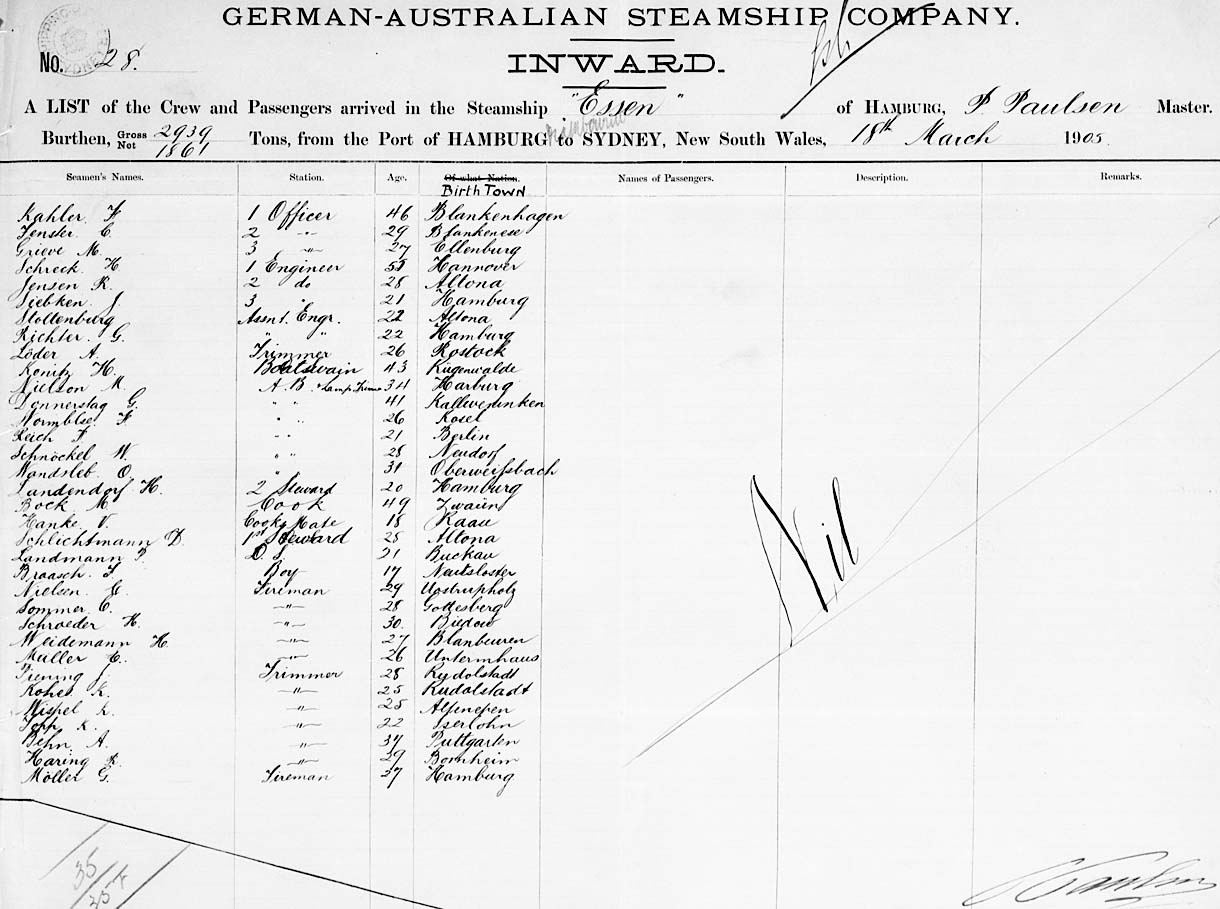 GERMAN-AUSTRALIAN STEAMSHIP COMPANY.
No. 28.
INWARD.
A LIST of the Crew and Passengers arrived in the Steamship "Essen" of HAMBURG, P. Paulsen Master.
Burthen, Gross 2939 Not 1861 Tons, from the Port of HAMBURG to SYDNEY, New South Wales, 18th March 1905.
Seamen's Names. Station. Age. Of what Nation. Names of Passengers. Description. Remarks.
Birth Town
Kahler. F 1 Officer 46 Blankenhagen
Fenster. C. 2 -"- 29 Blankenese
Grieve M. 3 -"- 27 Ellenburg
Schreck. H 1 Engineer Hannover
Jensen R. 2 do 28 Altona
Siebken. J. 3 " 21 Hamburg
Stoltenburg Assnt. Engr. 22 Altona
Richter. G. " " 22 Hamburg
Löder A. Trimmer 26 Rostock
Konitz H. Boatswain 43 Rügenwalde
Nielson M. A. B. & Lamp. Trimmer 34 Harburg
Donnerstag G. " " 41 Kalleveninken
F " " 26 Kosel
F " " 21 Berlin
Schnöckel W. " " 28 Neudorf
Wandsleb. O. " 31 Oberweißbach
Landendorf H. 2 Steward 20 Hamburg
Bock M. Cook 49
Hanke. V. Cooks Mate 18 Raau
Schlichtmann D. 1st Steward 25 Altona
Landmann P. O. S. 21 Buckau
Braasch. F Boy 17
Nielsen. Fireman 29 Uostrupholz
Sommer C. -"- 28 Godesberg
Schroeder H. -"- 30. Biedow
Weidemann H. -"- 27 Blanbeuren
Müller C. -"- 26 Untermhaus
Piening J. Trimmer 28 Rudolstadt
K. -"- 25 Rudolstadt
Mispel K. -"- 25
Topp K. -"- 22 Iserlohn
Behn. A. -"- 37 Puttgarten
Haring R. -"- 29 Bornheim
Möller G. Fireman 37 Hamburg
Nil
35
P Paulsen